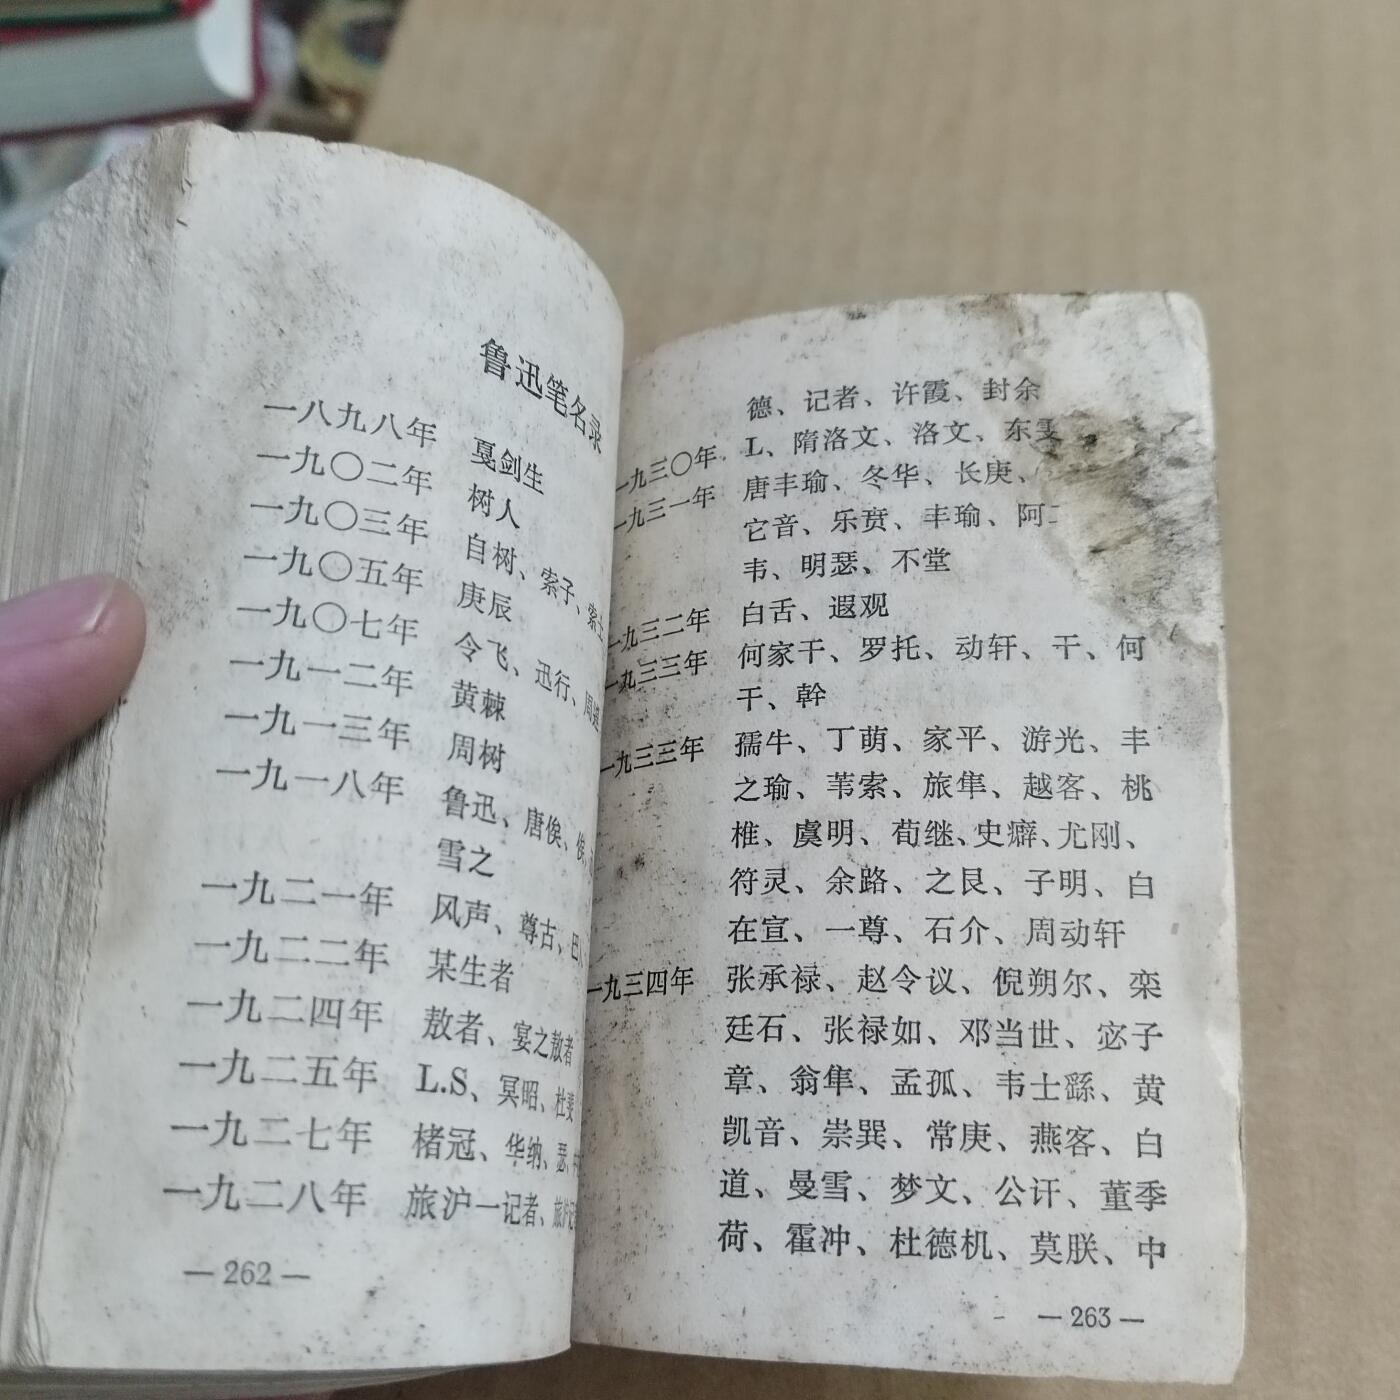 鲁迅笔名录
一八九八年 戛剑生
一九〇二年 树人
一九〇三年 自树、索子、索士
一九〇五年 庚辰
一九〇七年 令飞、迅行、周逴
一九一二年 黄棘
一九一三年 周树
一九一八年 鲁迅、唐俟、俟、
雪之
一九二一年 风声、尊古、巴
一九二二年 某生者
一九二四年 敖者、宴之敖者
一九二五年 L.S、冥昭、杜斐
一九二七年 楮冠、华纳、瑟、
一九二八年 旅沪一记者、旅沪记
—262—
德、记者、许霞、封余
一九三〇年 L、隋洛文、洛文、东雯
一九三一年 唐丰瑜、冬华、长庚、
它音、乐贲、丰瑜、阿二
韦、明瑟、不堂
一九三二年 白舌、遐观
一九三三年 何家干、罗托、动轩、干、何
干、幹
一九三三年 孺牛、丁萌、家平、游光、丰
之瑜、苇索、旅隼、越客、桃
椎、虞明、荀继、史癖、尤刚、
符灵、余路、之艮、子明、白
在宣、一尊、石介、周动轩
一九三四年 张承禄、赵令议、倪朔尔、栾
廷石、张禄如、邓当世、宓子
章、翁隼、孟孤、韦士繇、黄
凯音、崇巽、常庚、燕客、白
道、曼雪、梦文、公讦、董季
荷、霍冲、杜德机、莫朕、中
—263—